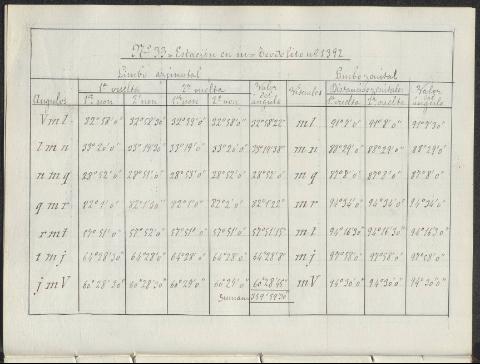 Nº 33 = Estación en m = Teodolito nº 1392
Limbo azimutal Limbo zenital
1ª vuelta 2ª vuelta Valor del ángulo Distancias zenitales Valor
Angulos 1er non 2º non 1er non 2º non Vísuales 1ª vuelta 2ª vuelta ángulo
V m l 32°58'0" 32°58'30" 32°59'0" 32°58'0" 32°58'22" m l 91°8'0" 91°8'0" 91°8'30"
l m n 33°20'0" 33°19'30" 33°19'0" 33°20'0" m n 88°29'0" 88°29'0" 88°29'0"
n m q 28°52'0" 28°51'0" 28°53'0" 28°52'0" 28°52'0" m q 87°8'0" 87°8'0" 87°8'0"
q m r 82°1'0" 82°1'30" 82°1'0" 82°2'0" 82°1'22" m r 94°34'0" 94°34'0" 94°34'0"
r m t 57°51'0" 57°52'0" 57°51'0" 57°51'0" 57°51'15" m t 94°16'30" 94°16'30" 94°16'30"
t m j 64°28'30" 64°28'0" 64°28'0" 64°28'0" 64°28'8" m j 97°58'0" 97°58'0" 97°58'0"
j m V 60°28'30" 60°28'30" 60°29'0" 60°29'0" 60°28'45" m V 94°30'0" 94°30'0" 94°30'0"
Suman 359°59'30"